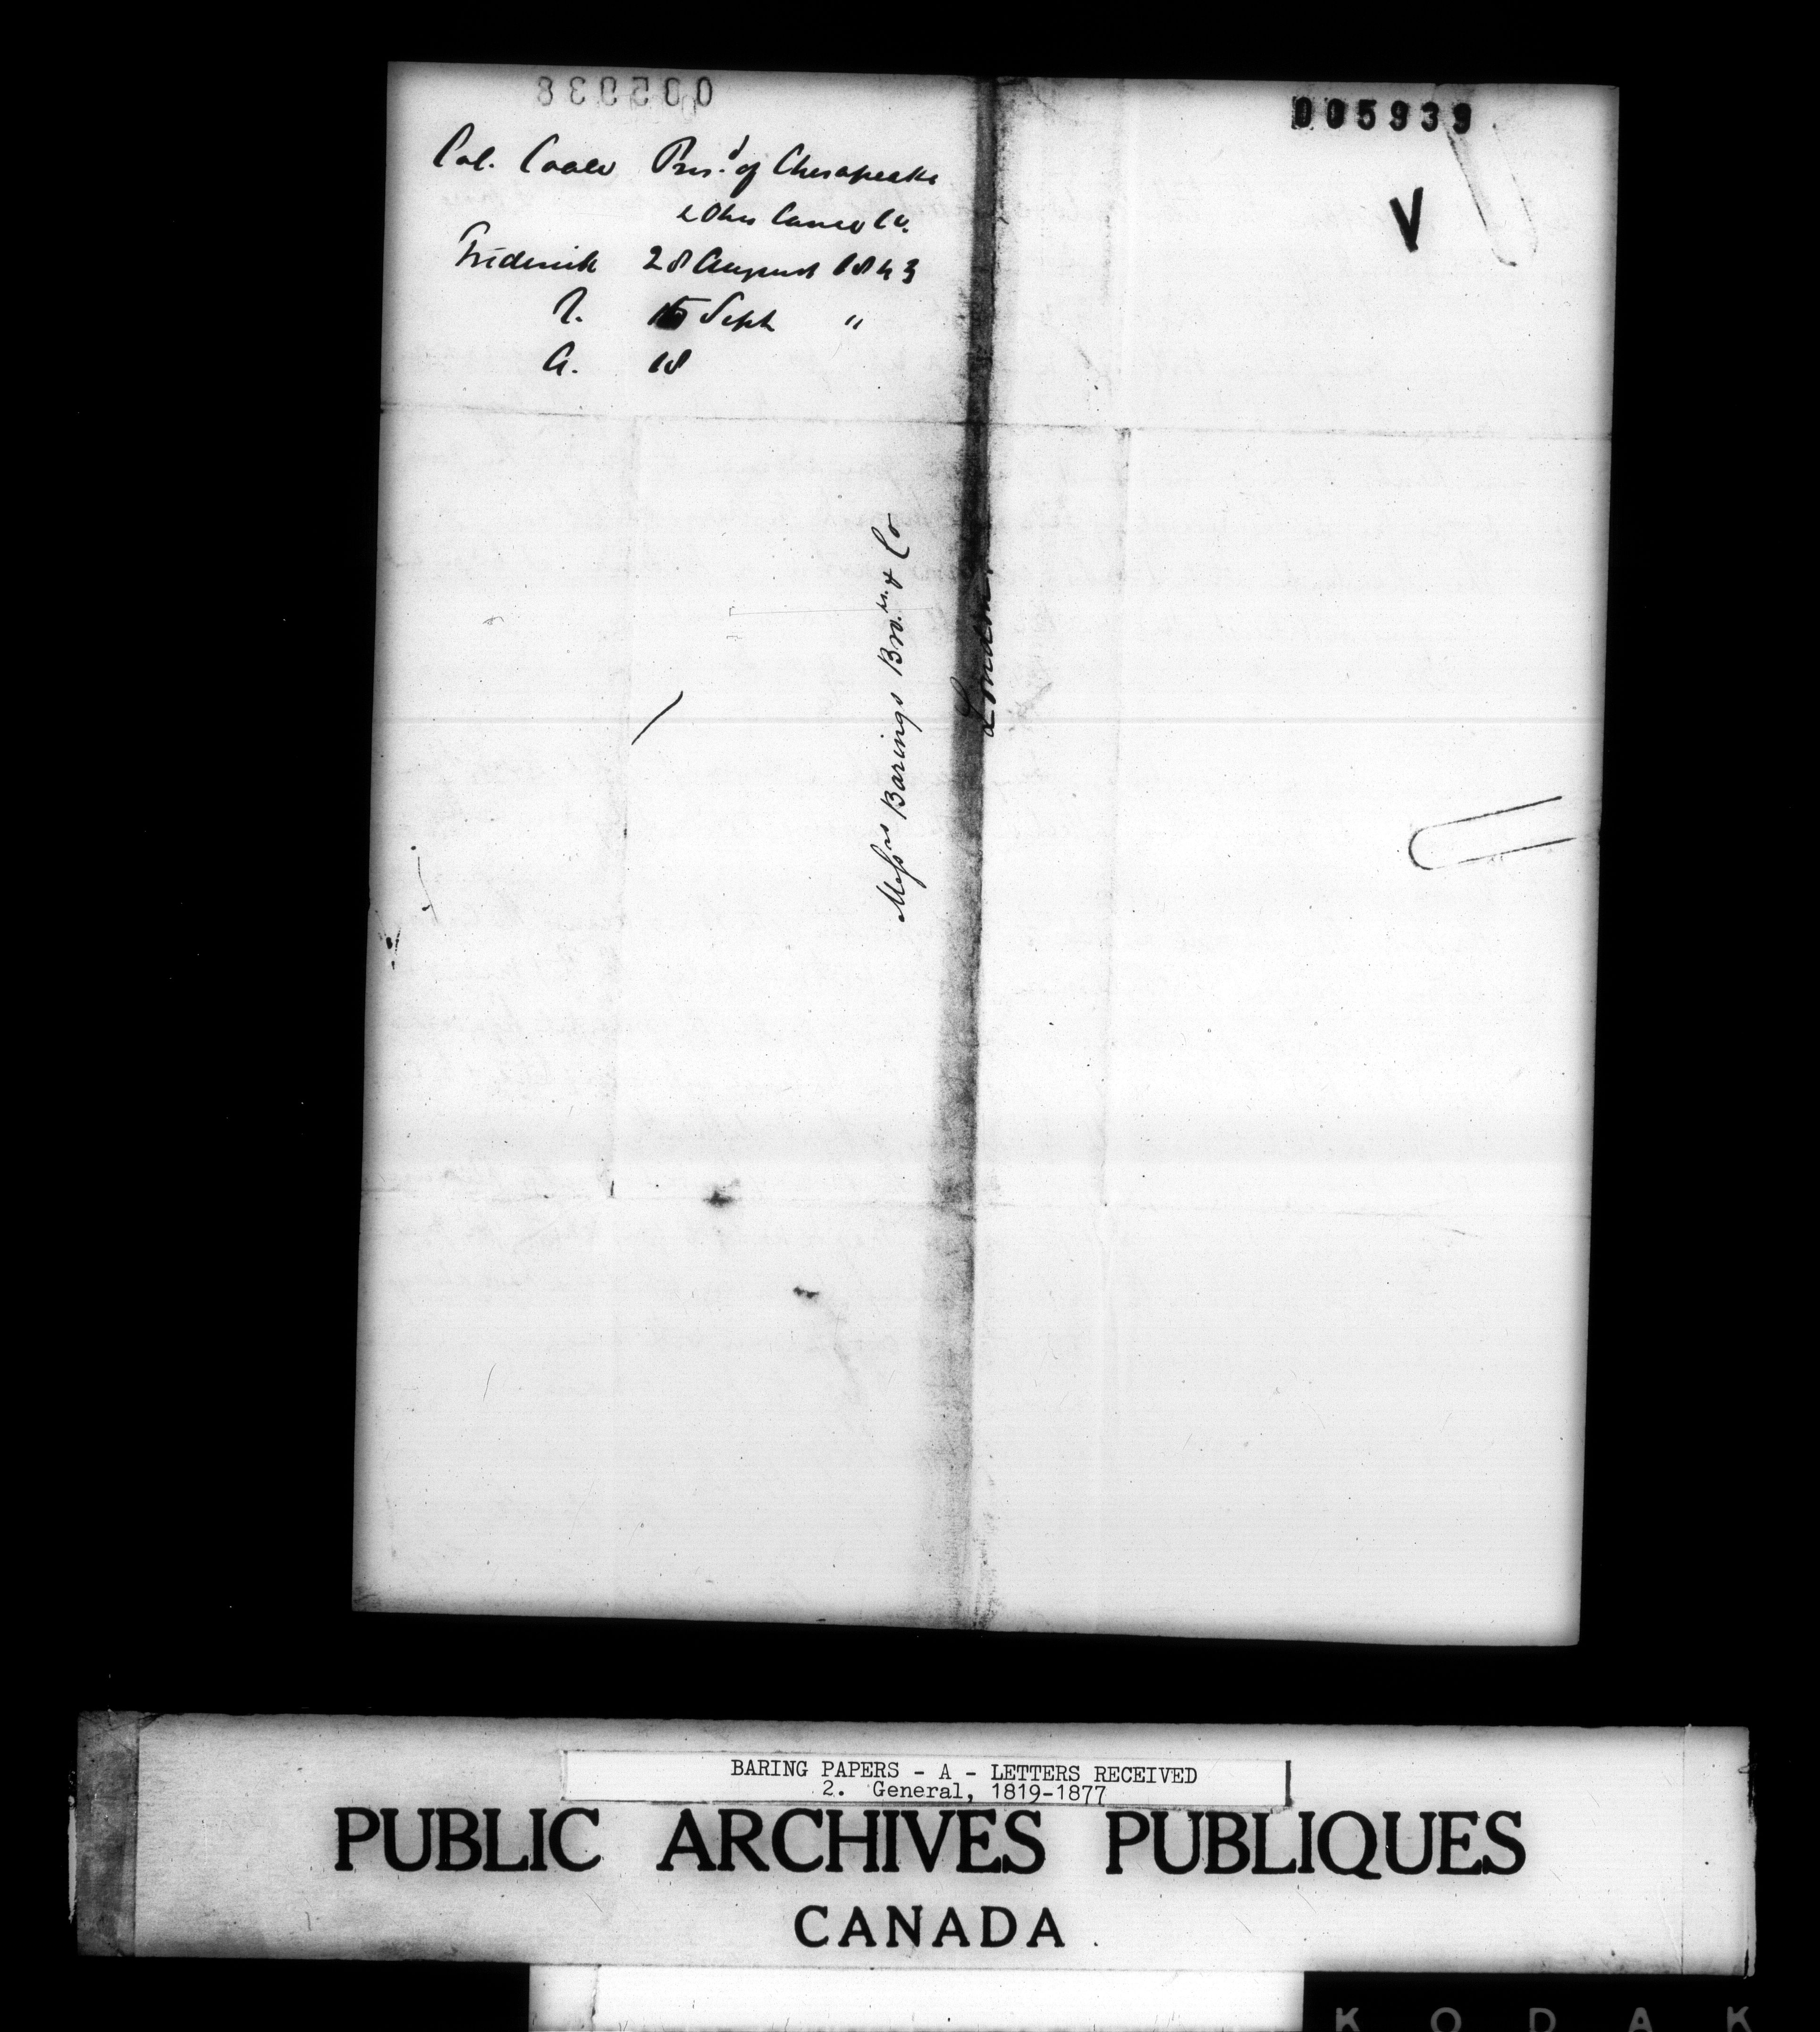 005938
005939
V
Col. Coale Pres.d of Chesapeake
& Ohio Canal Co.
Frederick 28 August 1843
R. 15 Sept "
A. 18
Messrs Barings Bro.rs & Co
London
BARING PAPERS - A - LETTERS RECEIVED
2. General, 1819-1877
PUBLIC ARCHIVES PUBLIQUES
CANADA
KODAK